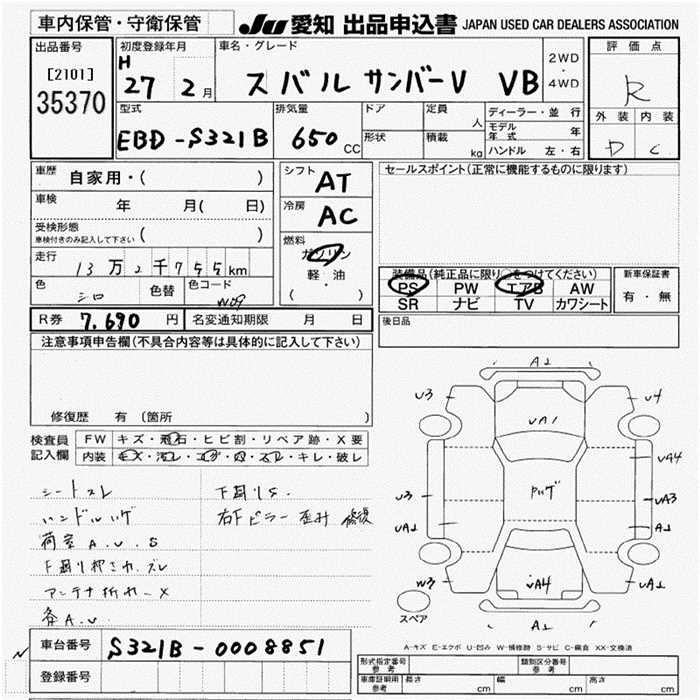 車内保管・守衛保管
JU 愛知 出品申込書 JAPAN USED CAR DEALERS ASSOCIATION
出品番号
[2101]
35370
初度登録年月
H
27 2月
車名・グレード
スバル サンバーV VB
2WD
・
4WD
評価点
R
外装 内装
D C
型式
EBD-S321B
排気量
650 CC
ドア
形状
定員
人
積載
kg
ディーラー・並行
モデル年式 年
ハンドル 左・右
車歴
自家用・( )
車検 年 月( 日)
受検形態
車検付きのみ記入して下さい ( )
走行
13万2千755km
色 シロ 色替 色コード W09
シフト AT
冷房 AC
燃料
ガソリン
軽・油
( )
セールスポイント(正常に機能するものに限ります)
装備品(純正品に限り○をつけてください)
PS PW エアB AW
SR ナビ TV カワシート
新車保証書
有・無
後日品
R券 7,690 円 名変通知期限 月 日
注意事項申告欄(不具合内容等は具体的に記入して下さい)
修復歴 有 (箇所
検査員
記入欄
FW キズ・飛石・ヒビ割・リペア跡・X要
内装 キズ・汚レ・コゲ・穴・スレ・キレ・破レ
シートスレ
ハンドルハゲ
荷室A.U.S
下廻り押され.ズレ
アンテナ折れ-X
各A.U
下廻りS.
右Fピラー歪み 修復
A2
U3
U4
UA1
UA4
U3
UA3
UA1
A1
W3
UA4
UA1
A1
スペア
A-キズ E-エクボ U-凹み W-補修跡 S-サビ C-腐食 XX-交換済
車台番号 S321B-0008851
登録番号
形式指定番号
参考
類別区分番号
参考
車庫証明用
参考
長さ cm 幅 cm 高さ cm